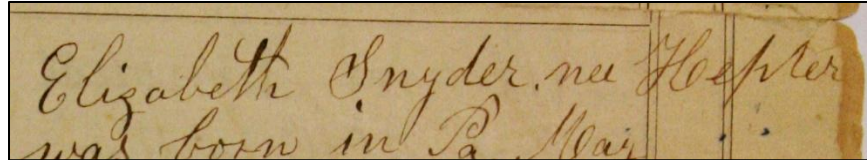 Elizabeth Snyder, nee Hepler
was born in Pa. Mar